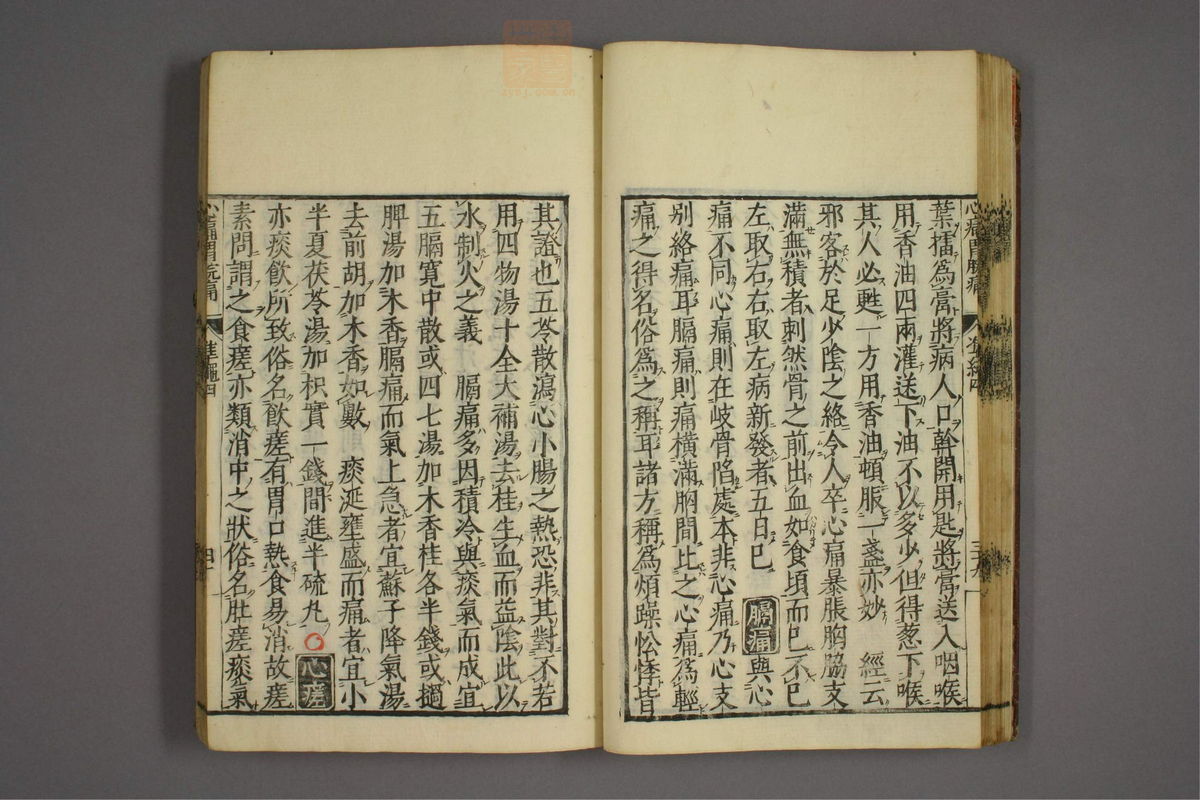 葉擂為膏將病人口幹開用匙將膏送入咽喉
用香油四兩灌送下油不以多少但得葱下喉
其人必甦一方用香油頓服一盞亦妙 經云
邪客於足少陰之絡令人卒心痛暴脹胸脇支
滿無積者刺然骨之前出血如食頃而已不已
左取右右取左病新發者五日已 膈痛 與心
痛不同心痛則在岐骨陷處本非心痛乃心支
別絡痛耳膈痛則痛橫滿胸間比之心痛為輕
痛之得名俗為之稱耳諸方稱為煩躁忪悸皆
其證也五苓散瀉心小腸之熱恐非其對不若
用四物湯十全大補湯去桂生血而益陰此以
水制火之義 膈痛多因積冷與痰氣而成宜
五膈寬中散或四七湯加木香桂各半錢或挝
脾湯加木香膈痛而氣上急者宜蘇子降氣湯
去前胡加木香如數 痰涎壅盛而痛者宜小
半夏茯苓湯加枳實一錢間進半硫丸 心痓
亦痰飲所致俗名飲痓有胃口熱食易消故痓
素問謂之食痓亦類消中之狀俗名肚痓痰氣